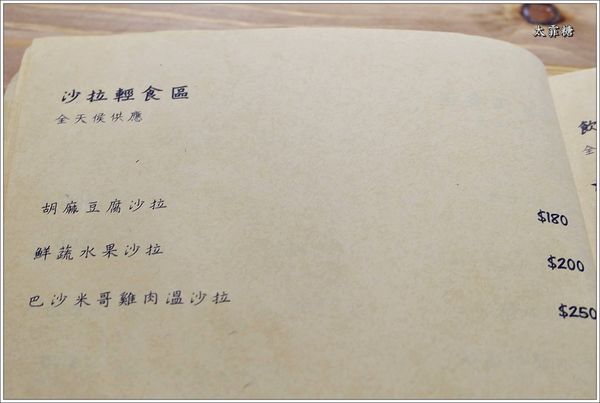 太霏糖
沙拉輕食區
全天侯供應
胡麻豆腐沙拉 $180
鮮蔬水果沙拉 $200
巴沙米哥雞肉溫沙拉 $250
飲
全